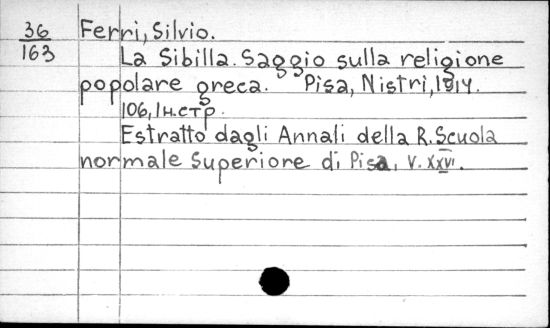 36
163
Ferri, Silvio.
La Sibilla. Saggio sulla religione
popolare greca. Pisa, Nistri, 1914.
106, 1 н. стр.
Estratto dagli Annali della R. Scuola
normale Superiore di Pisa, V. XXVI.